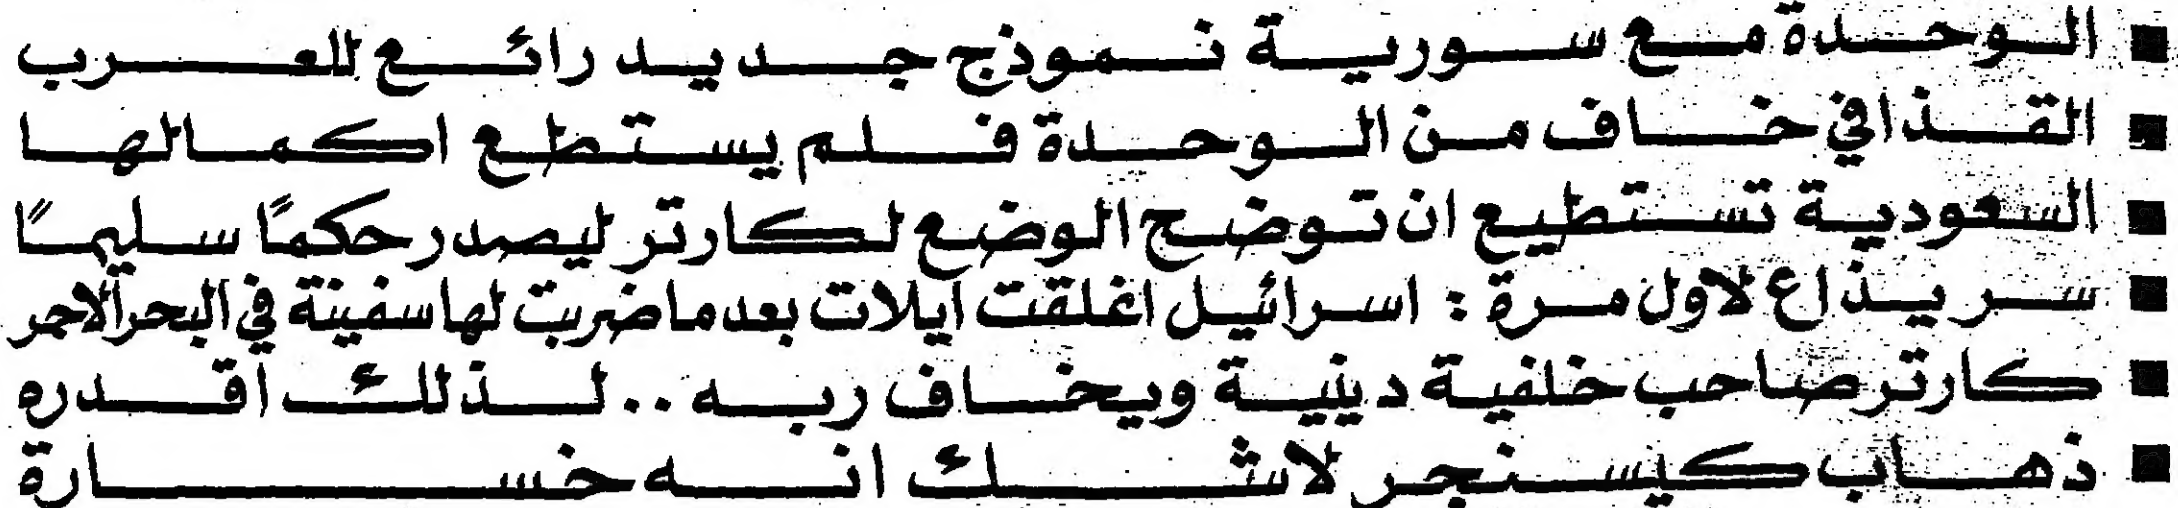 ■ الوحدة مع سورية نموذج جديد رائع للعرب
■ القذافي خاف من الوحدة فلم يستطع اكمالها
■ السعودية تستطيع ان توضح الوضع لكارتر ليصدر حكمًا سليمًا
■ سر يذاع لاول مرة : اسرائيل اغلقت ايلات بعدما ضربت لها سفينة في البحر الاحمر
■ كارتر صاحب خلفية دينية ويخاف ربه .. لذلك اقدره
■ ذهاب كيسنجر لاشك انه خسارة